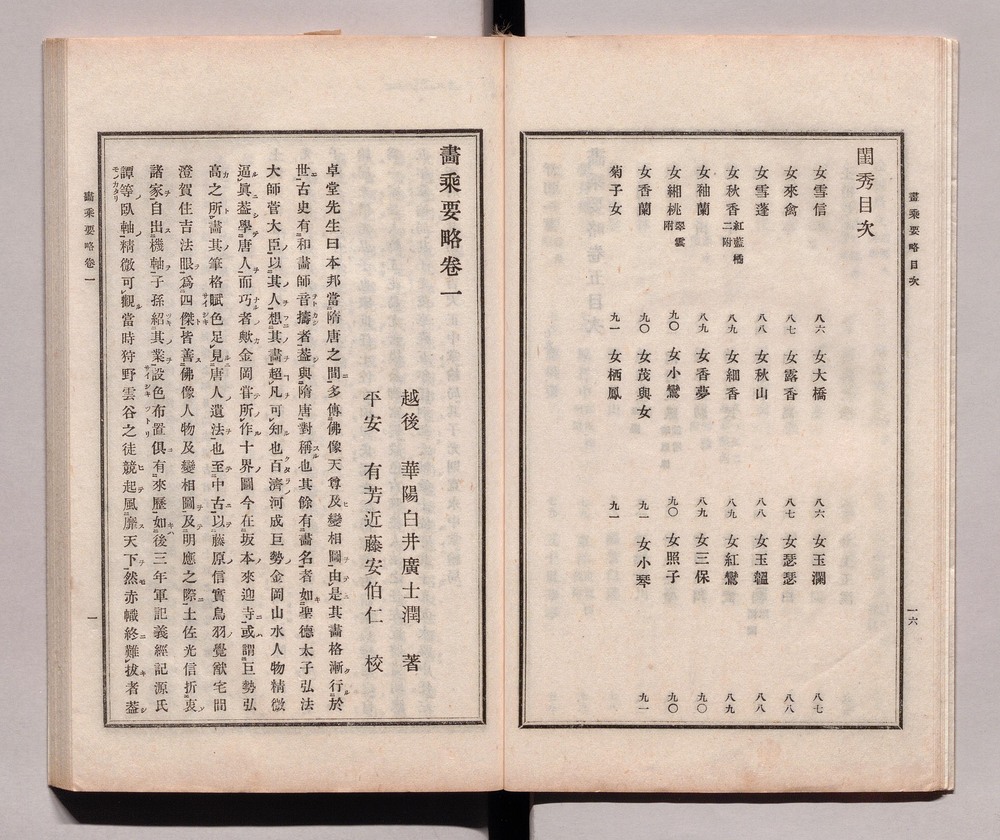 畫乘要略目次
一六
閨秀目次
女雪信 八六 女大橋 八六 女玉瀾 八七
女來禽 八七 女露香 八七 女瑟瑟 八八
女雪蓬 八八 女秋山 八八 女玉韞 八八
女秋香 紅藍橘二附 八九 女細香 八九 女紅鸞 八九
女袖蘭 八九 女香夢 八九 女三保 九〇
女緗桃 翠雲附 九〇 女小鸞 九〇 女照子 九〇
女香蘭 九〇 女茂與女 九一 女小琴 九一
菊子女 九一 女栖鳳 九一
畫乘要略卷一
越後 華陽白井廣士潤 著
平安 有芳近藤安伯仁 校
卓堂先生曰本邦當隋唐之間多傳佛像天尊及變相圖由是其畫格漸行於
世古史有和畫師音擣者蓋與隋唐對稱也其餘有畫名者如聖德太子弘法
大師菅大臣以其人想其畫超凡可知也百濟河成巨勢金岡山水人物精微
逼眞蓋學唐人而巧者歟金岡嘗所作十界圖今在坂本來迎寺或謂巨勢弘
高之所畫其筆格賦色足見唐人遺法也至中古以藤原信實鳥羽覺猷宅間
澄賀住吉法眼爲四傑皆善佛像人物及變相圖及明應之際土佐光信折衷
諸家自出機軸子孫紹其業設色布置俱有來歷如後三年軍記義經記源氏
譚等臥軸精微可觀當時狩野雲谷之徒競起風靡天下然赤幟終難拔者蓋
畫乘要略卷一
一